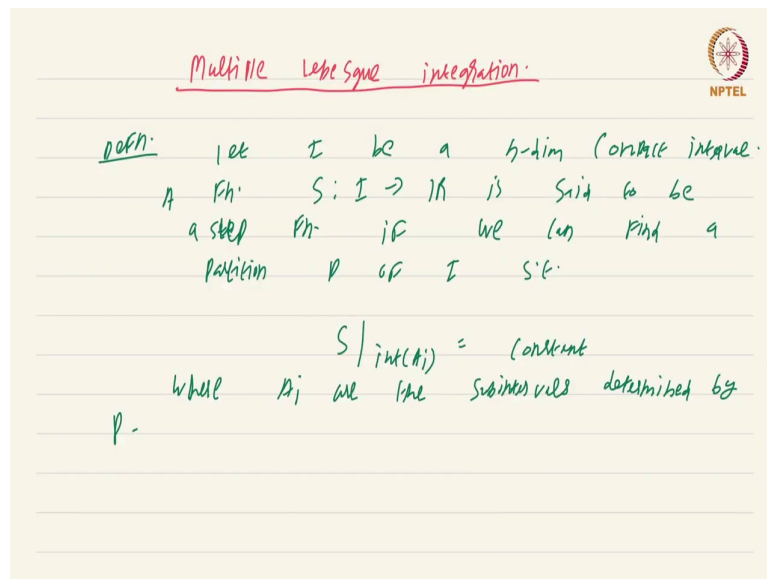 Multiple Lebesgue integration.
NPTEL
Defn. let I be a n-dim compact interval.
A Fn. S: I → IR is said to be
a step Fn. if we can find a
partition P of I s.t.
S|int(Ai) = constant
where Ai are the subintervals determined by
P.